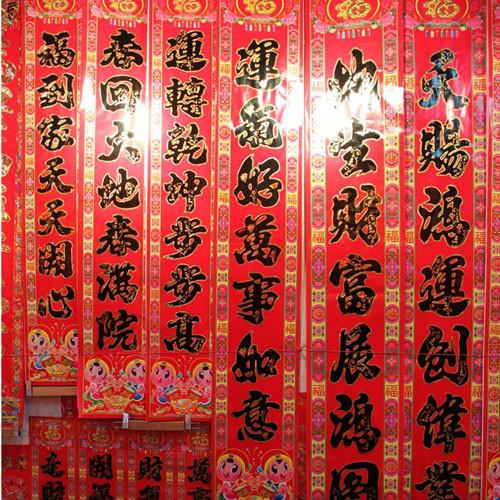 天賜鴻運創偉業
地生財富展鴻圖
運氣好萬事如意
運轉乾坤步步高
春回大地春滿院
福到家天天開心
萬事
財
開
財